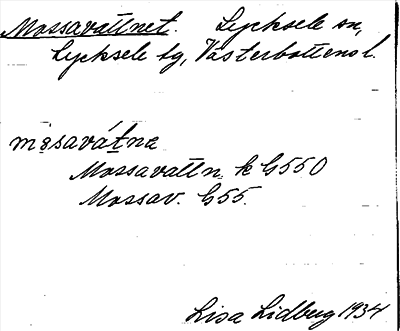 Mossavattnet. Lycksele sn,
Lycksele lg, Västerbottens l.
mɵsavátna
Mossavattn. k G550
Mossav. G55.
Lisa Lidberg 1934